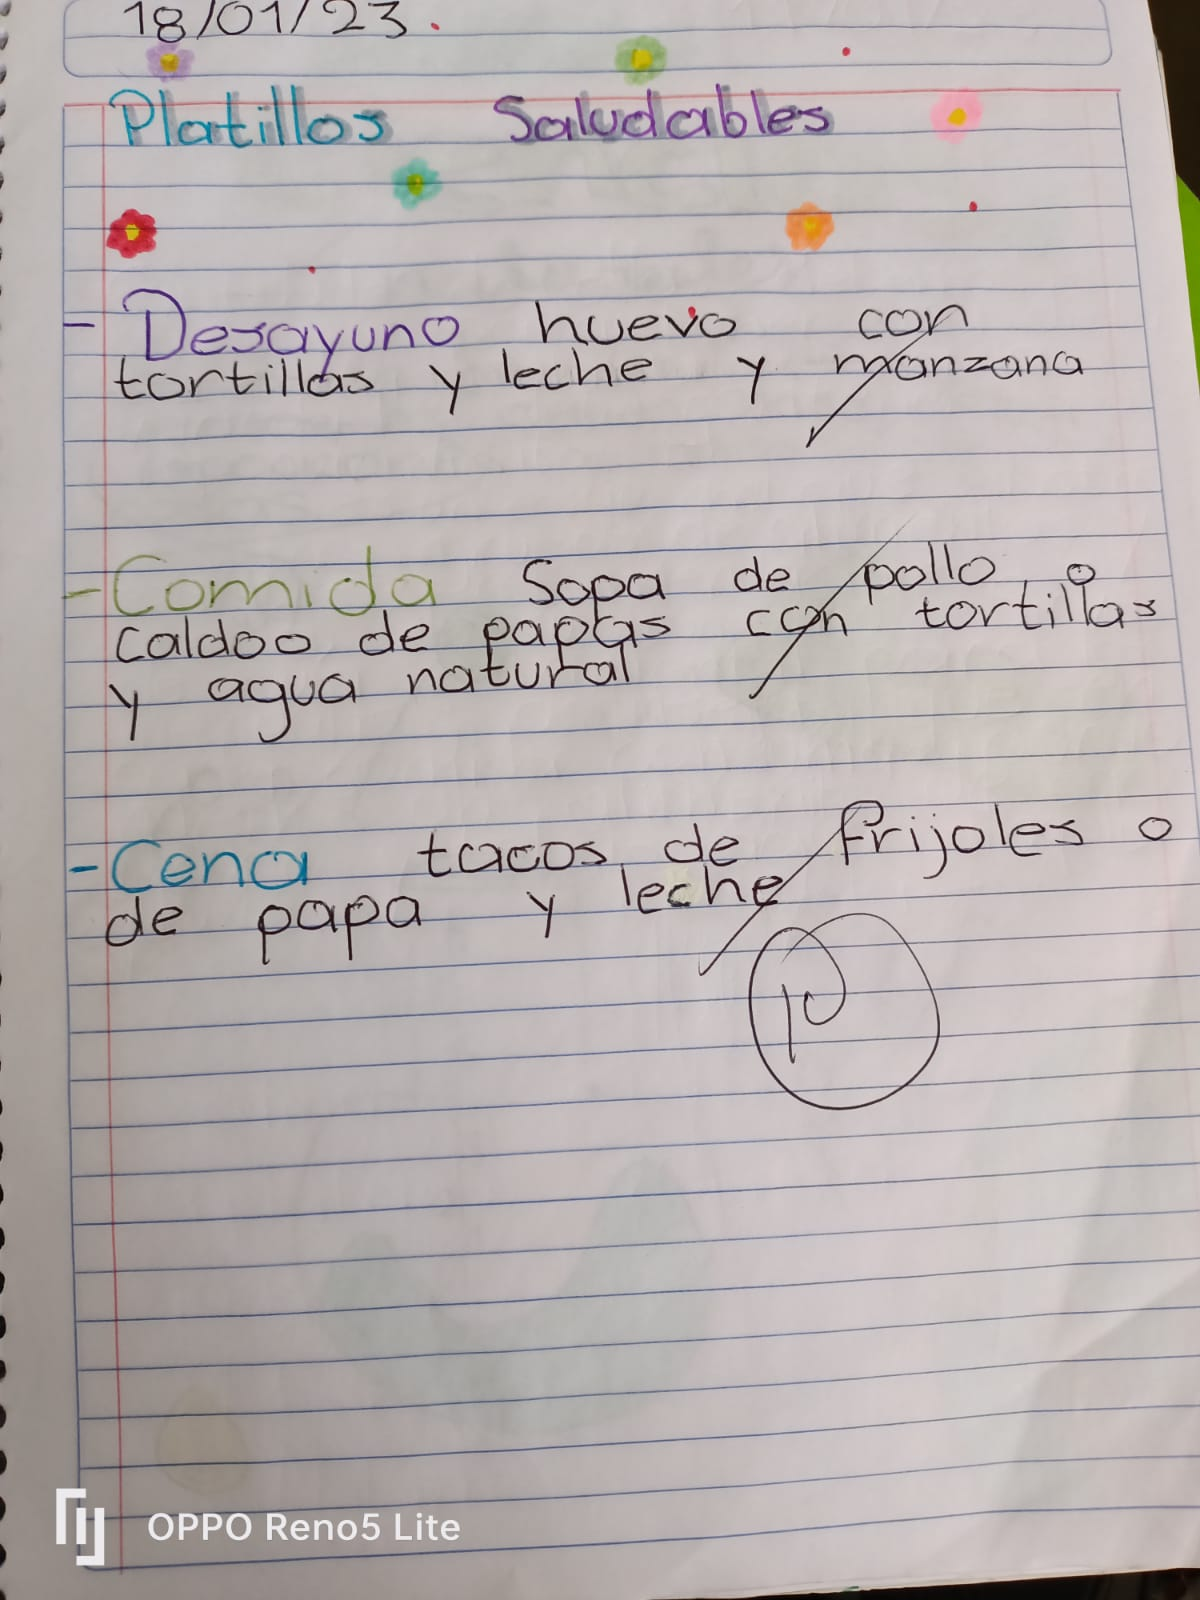 18/01/23.
Platillos Saludables
- Desayuno huevo con
tortillas y leche y manzana
- Comida Sopa de pollo, o
caldoo de papas con tortillas
y agua natural
- Cena tacos de frijoles o
de papa y leche
10
OPPO Reno5 Lite